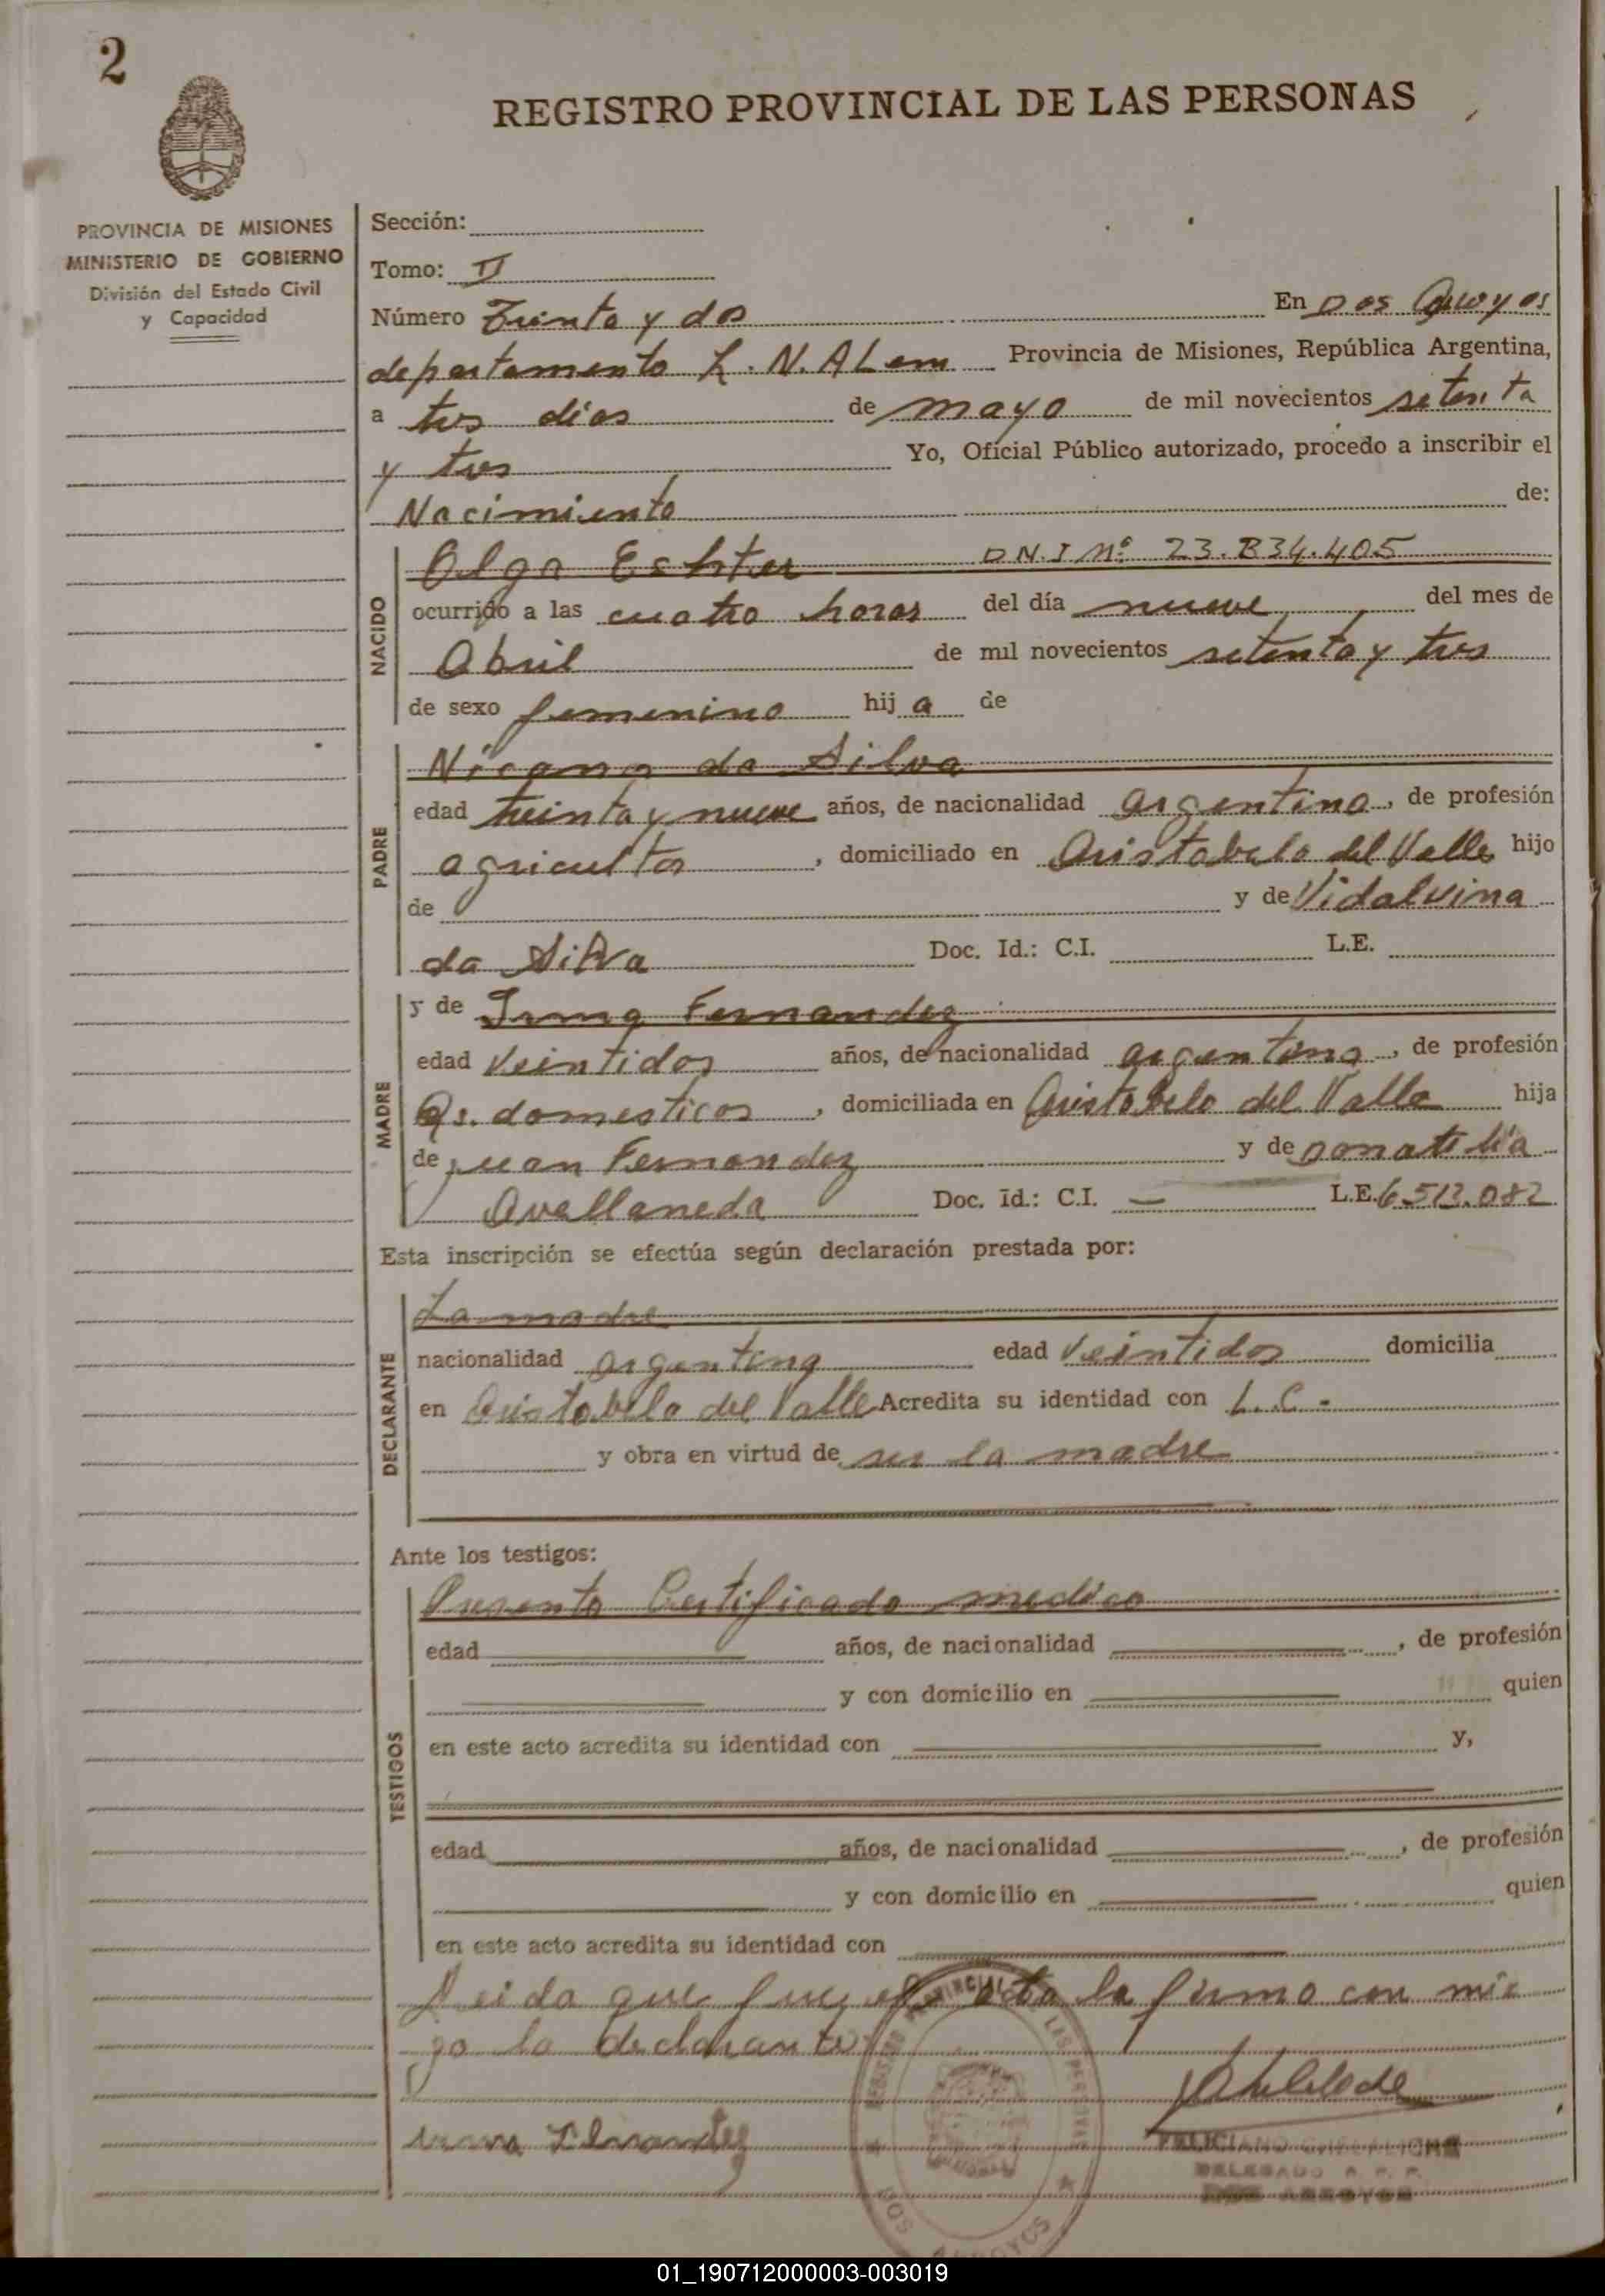 2
REGISTRO PROVINCIAL DE LAS PERSONAS
PROVINCIA DE MISIONES
MINISTERIO DE GOBIERNO
División del Estado Civil
y Capacidad
Sección:
Tomo: II
Número Treinta y dos En Dos Arroyos
departamento L. N. ALem Provincia de Misiones, República Argentina,
a tres días de mayo de mil novecientos setenta
y tres Yo, Oficial Público autorizado, procedo a inscribir el
Nacimiento de:
NACIDO
Olga Eshter D.N.I Nº 23.834.405
ocurrido a las cuatro horas del día nueve del mes de
Abril de mil novecientos setenta y tres
de sexo femenino hij a de
PADRE
Nicanor da Silva
edad treinta y nueve años, de nacionalidad argentino, de profesión
agricultor, domiciliado en Aristobulo del Valle hijo
de y de Vidalvina
da Silva Doc. Id.: C.I. L.E.
MADRE
y de Irma Fernandez
edad Veintidos años, de nacionalidad argentina, de profesión
Qs. domesticos, domiciliada en Aristobulo del Valle hija
de Juan Fernandez y de Donatilia
Avellaneda Doc. Id.: C.I. — L.E. 6.513.082
Esta inscripción se efectúa según declaración prestada por:
DECLARANTE
La madre
nacionalidad argentina edad Veintidos domicilia
en Aristobulo del Valle Acredita su identidad con L.C.
y obra en virtud de ser la madre
Ante los testigos:
TESTIGOS
Presento Certificado medico
edad años, de nacionalidad , de profesión
y con domicilio en quien
en este acto acredita su identidad con y,
edad años, de nacionalidad , de profesión
y con domicilio en quien
en este acto acredita su identidad con
Leida que fue el acta la firma con mi
go la declarante
irma Fernandez
REGISTRO PROVINCIAL DE LAS PERSONAS
DOS ARROYOS
FELICIANO
DELEGADO R. P. P.
DOS ARROYOS
01_190712000003-003019